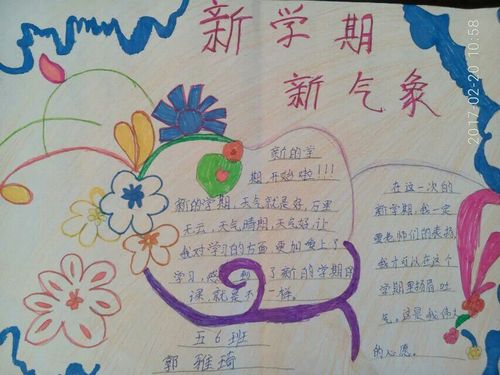 新学期
新气象
2017-02-20 10:58
新的学
期开始啦!!!
新的学期,天气就是好,万里
无云,天气晴朗,天气好,让
我对学习的方面更加爱上了
学习,感 到了新的学期的
课,就是不一样。
五6班
郭雅琦
在这一次的
新学期,我一定
要老师们的表扬,
我才可以在这个
学期里扬眉吐
气,这是我伟大
的心愿。